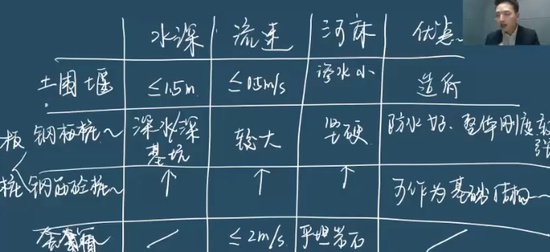 水深 流速 河床 优点
土围堰 ≤1.5m ≤0.5m/s 渗水小 造价
板 钢板桩~ 深水/深基坑 较大 坚硬 防水好、整体刚度较强
桩 钢筋砼桩~ ↑ ↑ ↑ 可作为基础结构一
套箱 / ≤2m/s 平坦岩石 /